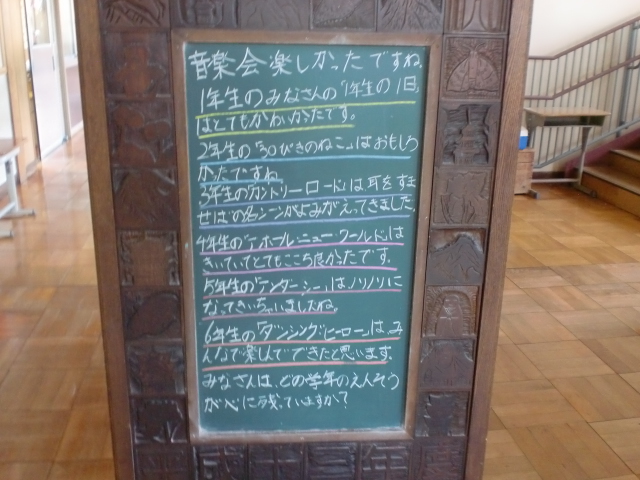 音楽会楽しかったですね。
1年生のみなさんの「1年生の1日」
はとてもかわいかたです。
2年生の「30ぴきのねこ」はおもしろ
かたですね。
3年生のカントリーロード」は耳をすま
せばの名シーンがよみがえってきました。
4年生の「ホール・ニュー・ワールド」は
きいていてとてもここち良かったです。
5年生の「テンターシー」はノリノリに
なってきいちゃいましたね。
6年生の「ダンシング・ヒーロー」は、み
んなで楽しんでできたと思います。
みなさんは、どの学年のえんそう
が心に残っていますか?